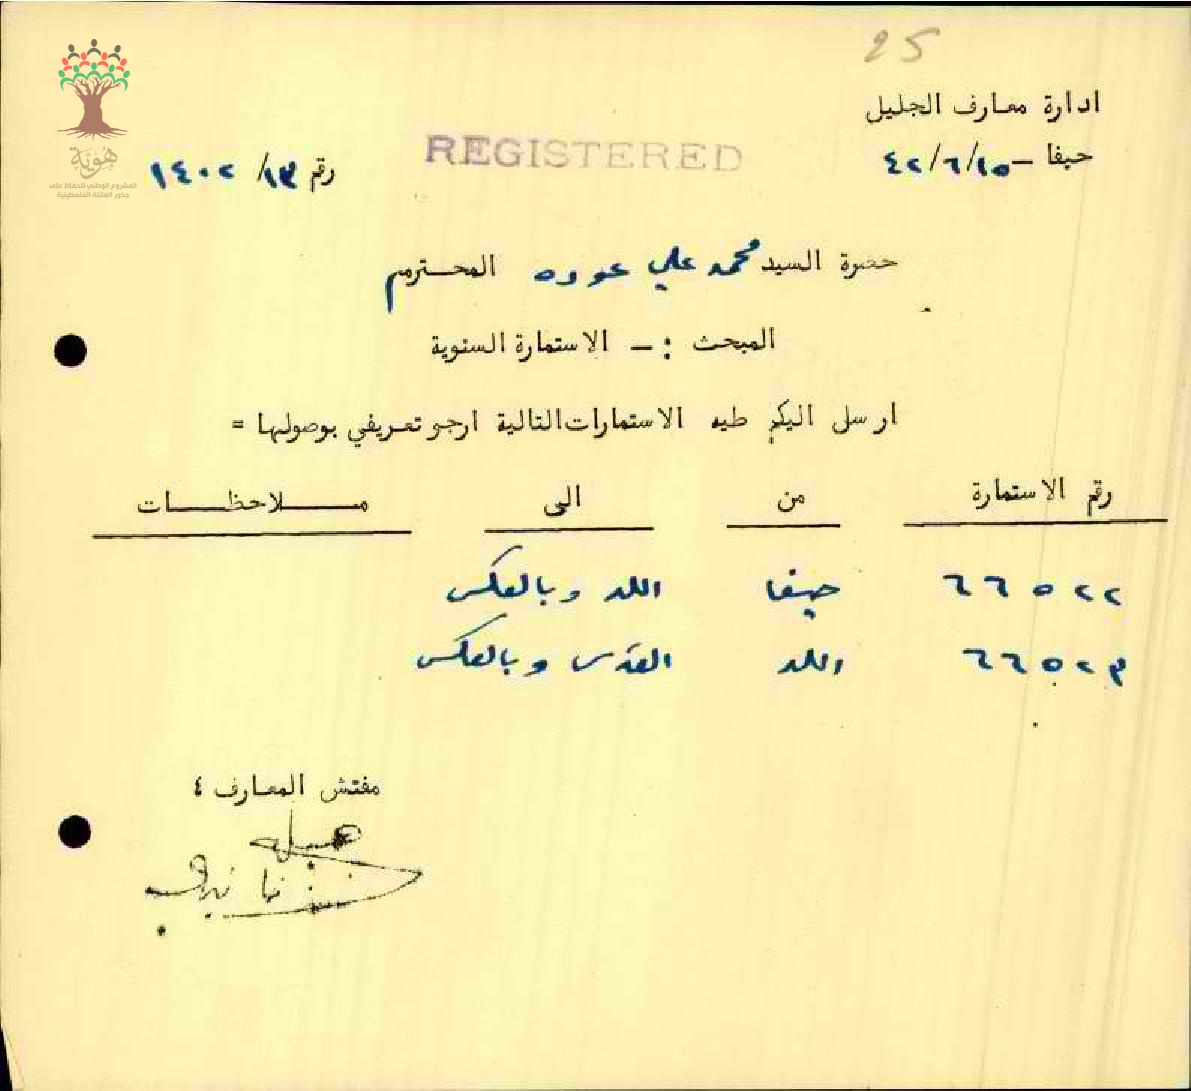 25
ادارة معارف الجليل
REGISTERED
حيفا – ٤٢/٦/١٥
رقم ١٣/ ١٤٠٢
هُوِيَّة
المشروع الوطني للحفاظ على
جذور العائلة الفلسطينية
حضرة السيد محمد علي عوده المحترم
المبحث :– الاستمارة السنوية
ارسل اليكم طيه الاستمارات التالية ارجو تعريفي بوصولها =
رقم الاستمارة من الى ملاحظات
٦٦٥٢٢ حيفا اللد وبالعكس
٦٦٥٢٣ اللد القدس وبالعكس
مفتش المعارف ٤